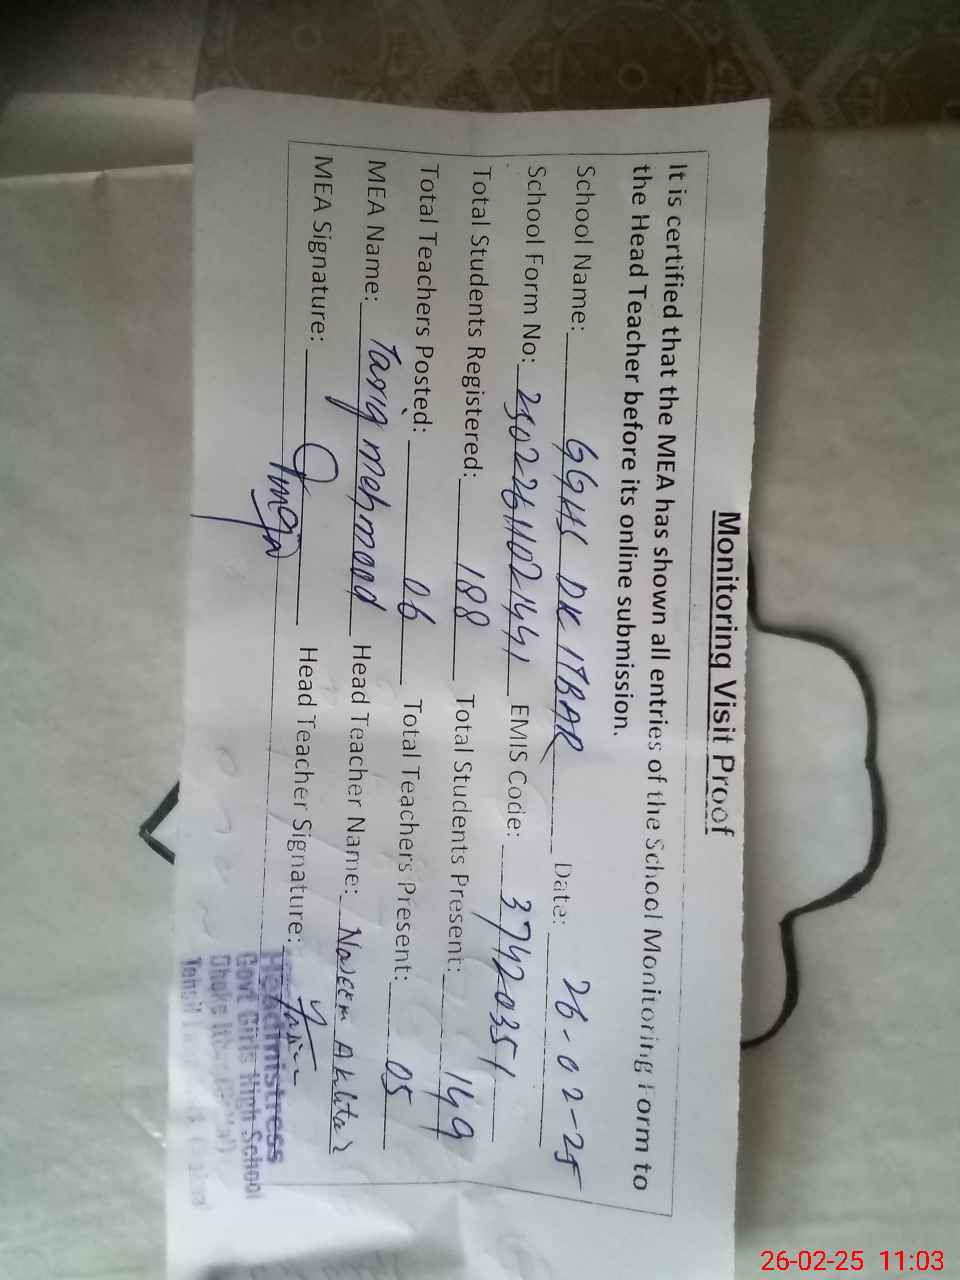 Monitoring Visit Proof
It is certified that the MEA has shown all entries of the School Monitoring Form to
the Head Teacher before its online submission.
School Name: GGHS DK ITBAR Date: 26-02-25
School Form No: 25022611021441 EMIS Code: 37420351
Total Students Registered: 188 Total Students Present: 149
Total Teachers Posted: 06 Total Teachers Present: 05
MEA Name: Tariq mehmood Head Teacher Name: Naseem Akhtar
MEA Signature: Head Teacher Signature:
Headmistress
Govt Girls High School
Dhoke
Tehsil
26-02-25 11:03